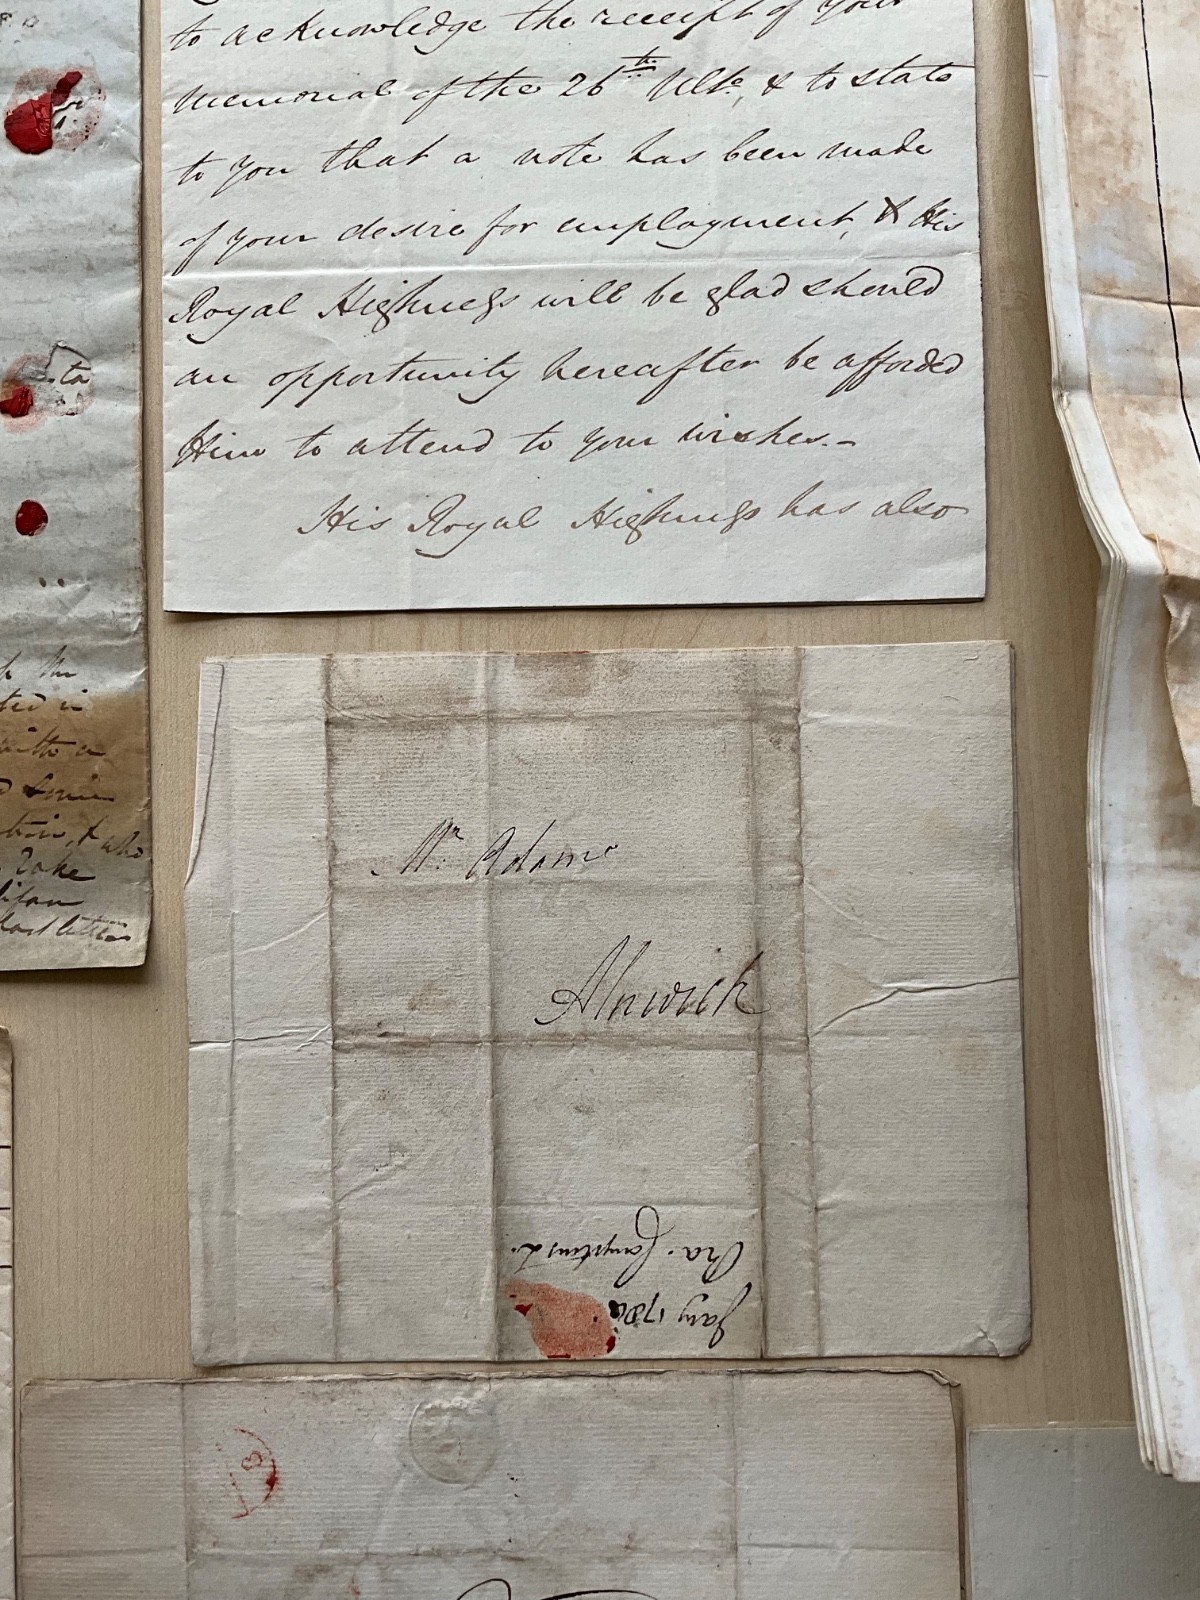 to acknowledge the receipt of your
Memorial of the 26th Ulto, & to state
to you that a note has been made
of your desire for employment, & His
Royal Highness will be glad should
an opportunity hereafter be afforded
Him to attend to your wishes.-
His Royal Highness has also
to
the
ted in
with a
& who
take
last letter
Mr. Adams
Alnwick
Jany